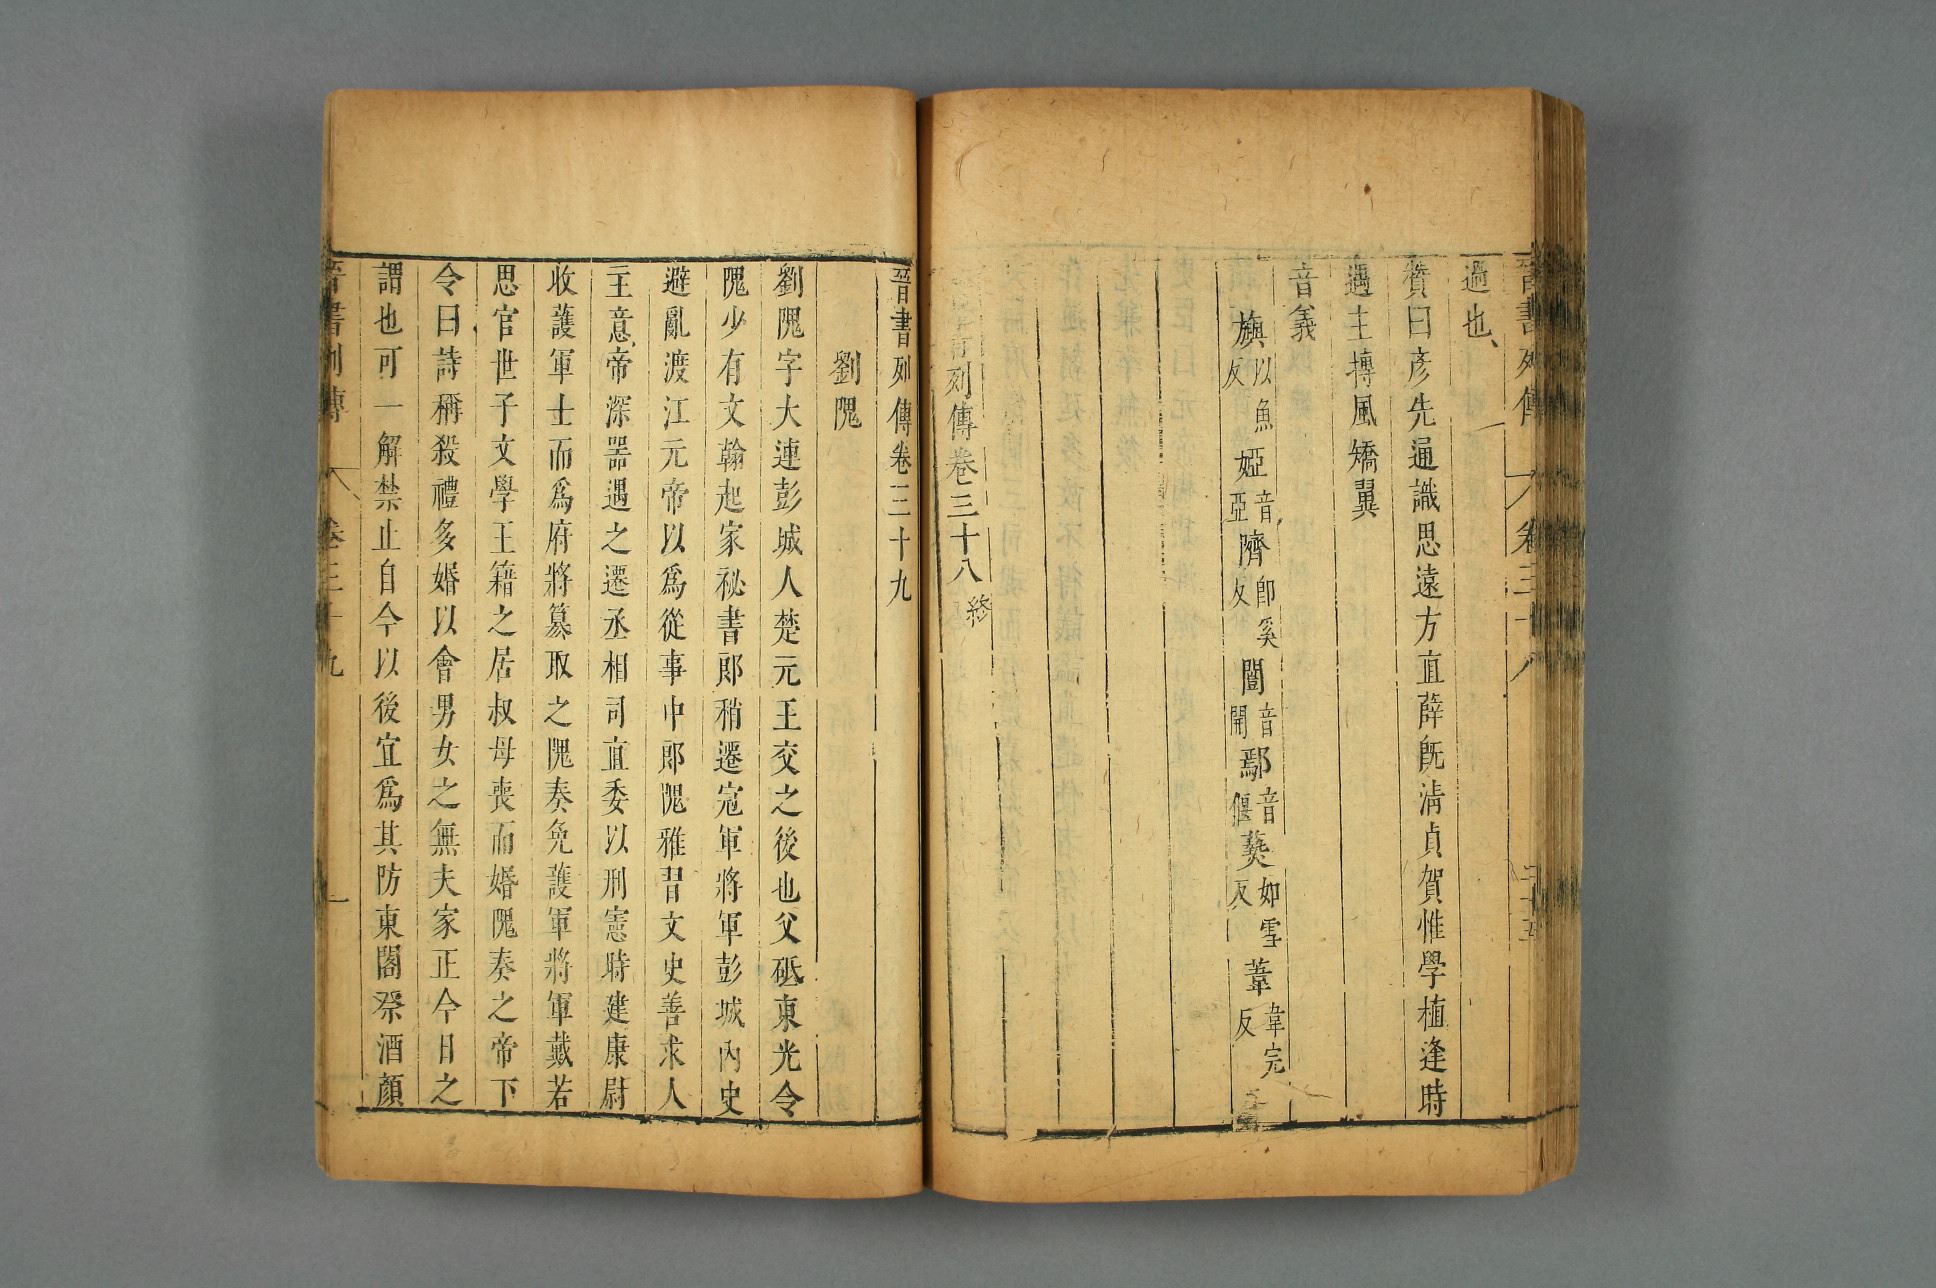 晉書列傳
卷三十八
二十五
過也、
贊曰彥先通識思遠方直薛旣淸貞賀惟學植逢時
遇主摶風矯翼
音義
旟以魚反 婭音亞 隮卽奚反 闓音開 鄢音偃 爇如雪反 葦韋完反
列傳卷三十八終
晉書列傳卷三十九
劉隗
劉隗字大連彭城人楚元王交之後也父砥東光令
隗少有文翰起家祕書郎稍遷冠軍將軍彭城內史
避亂渡江元帝以爲從事中郎隗雅習文史善求人
主意帝深器遇之遷丞相司直委以刑憲時建康尉
收護軍士而爲府將篡取之隗奏免護軍將軍戴若
思官世子文學王籍之居叔母喪而婚隗奏之帝下
令曰詩稱殺禮多婚以會男女之無夫家正今日之
謂也可一解禁止自今以後宜爲其防東閣祭酒顏
晉書列傳
卷三十九
一